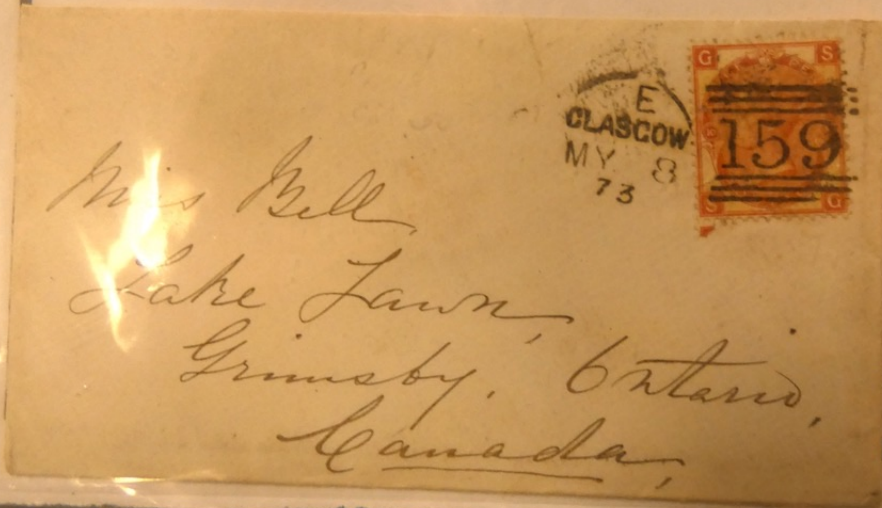 G S
E
GLASGOW
MY 8
73
159
S G
Miss Bell
Lake Lawn,
Grimsby, Ontario,
Canada,